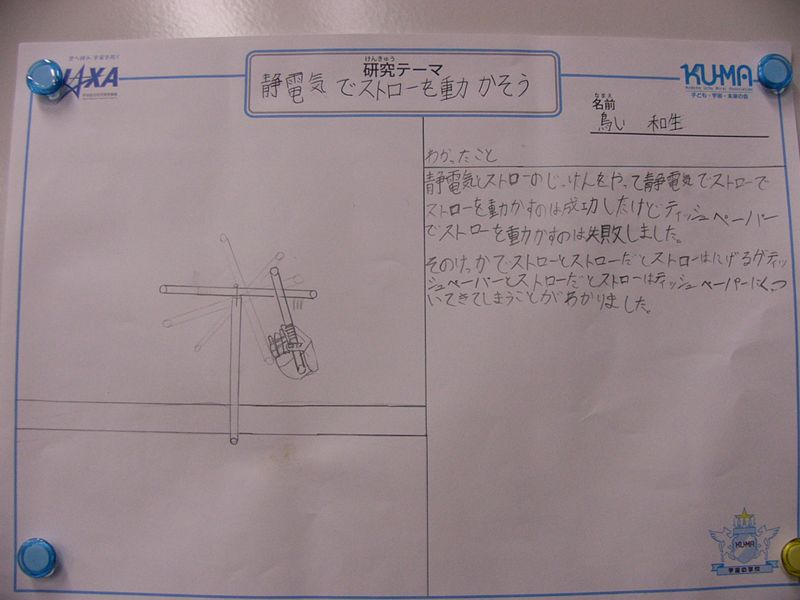 JAXA
けんきゅう
研究テーマ
静電気でストローを動かそう
KUMA
子ども・宇宙・未来の会
なまえ
名前
鳥い 和生
わかったこと
静電気とストローのじっけんをやって静電気でストローで
ストローを動かすのは成功したけどティッシュペーパー
でストローを動かすのは失敗しました。
そのけっかでストローとストローだとストローはにげるがティッ
シュペーパーとストローだとストローはティッシュペーパーにくっつ
いてきてしまうことがわかりました。
KUMA
宇宙の学校